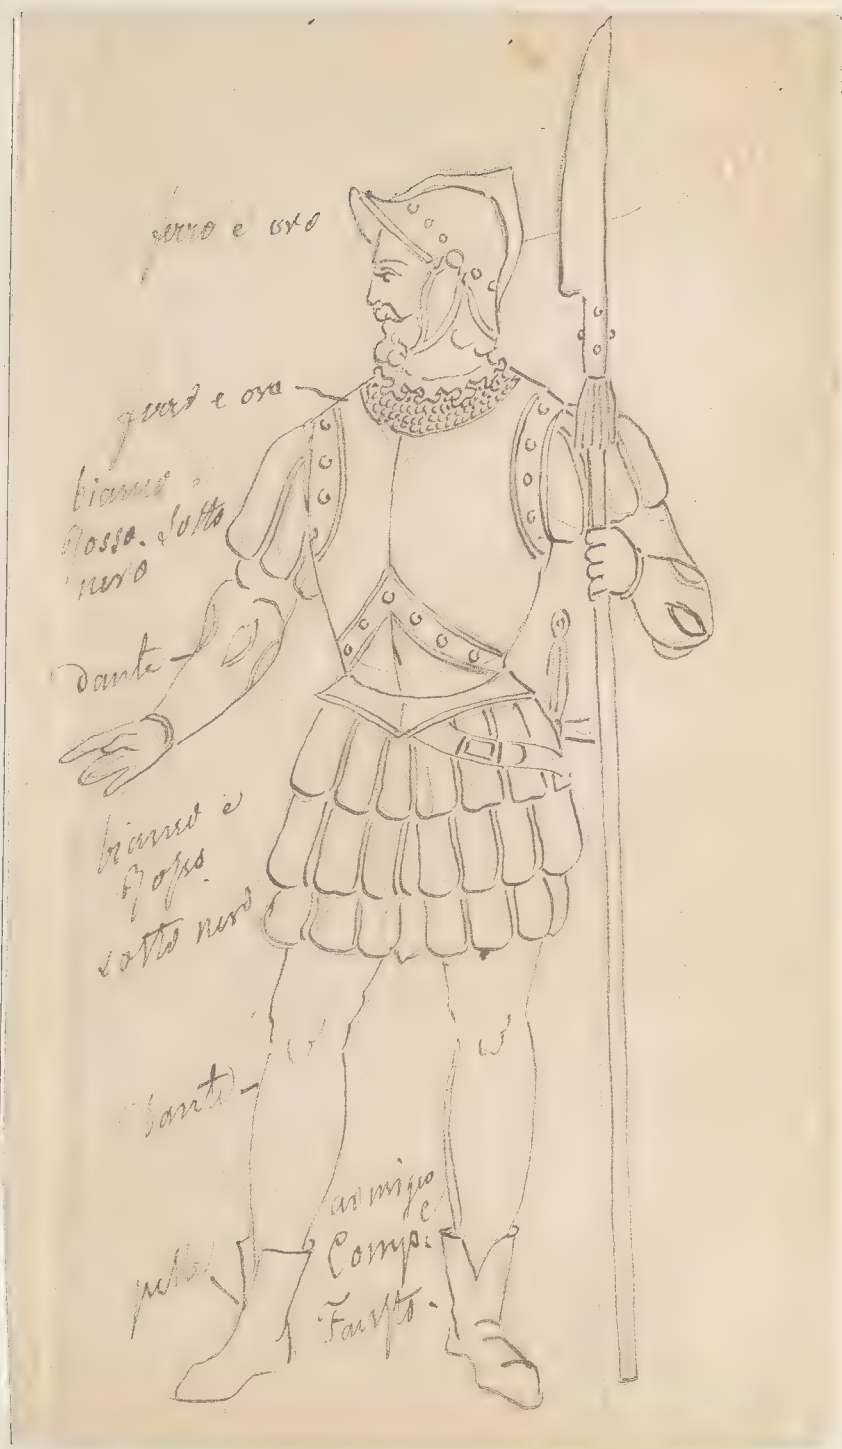 ferro e oro
ferro e oro
bianco e
Rosso. Sotto
nero
Dante
bianco e
Rosso.
sotto nero
Dante
pelle
armigeo
e
Comp:
Fausto.